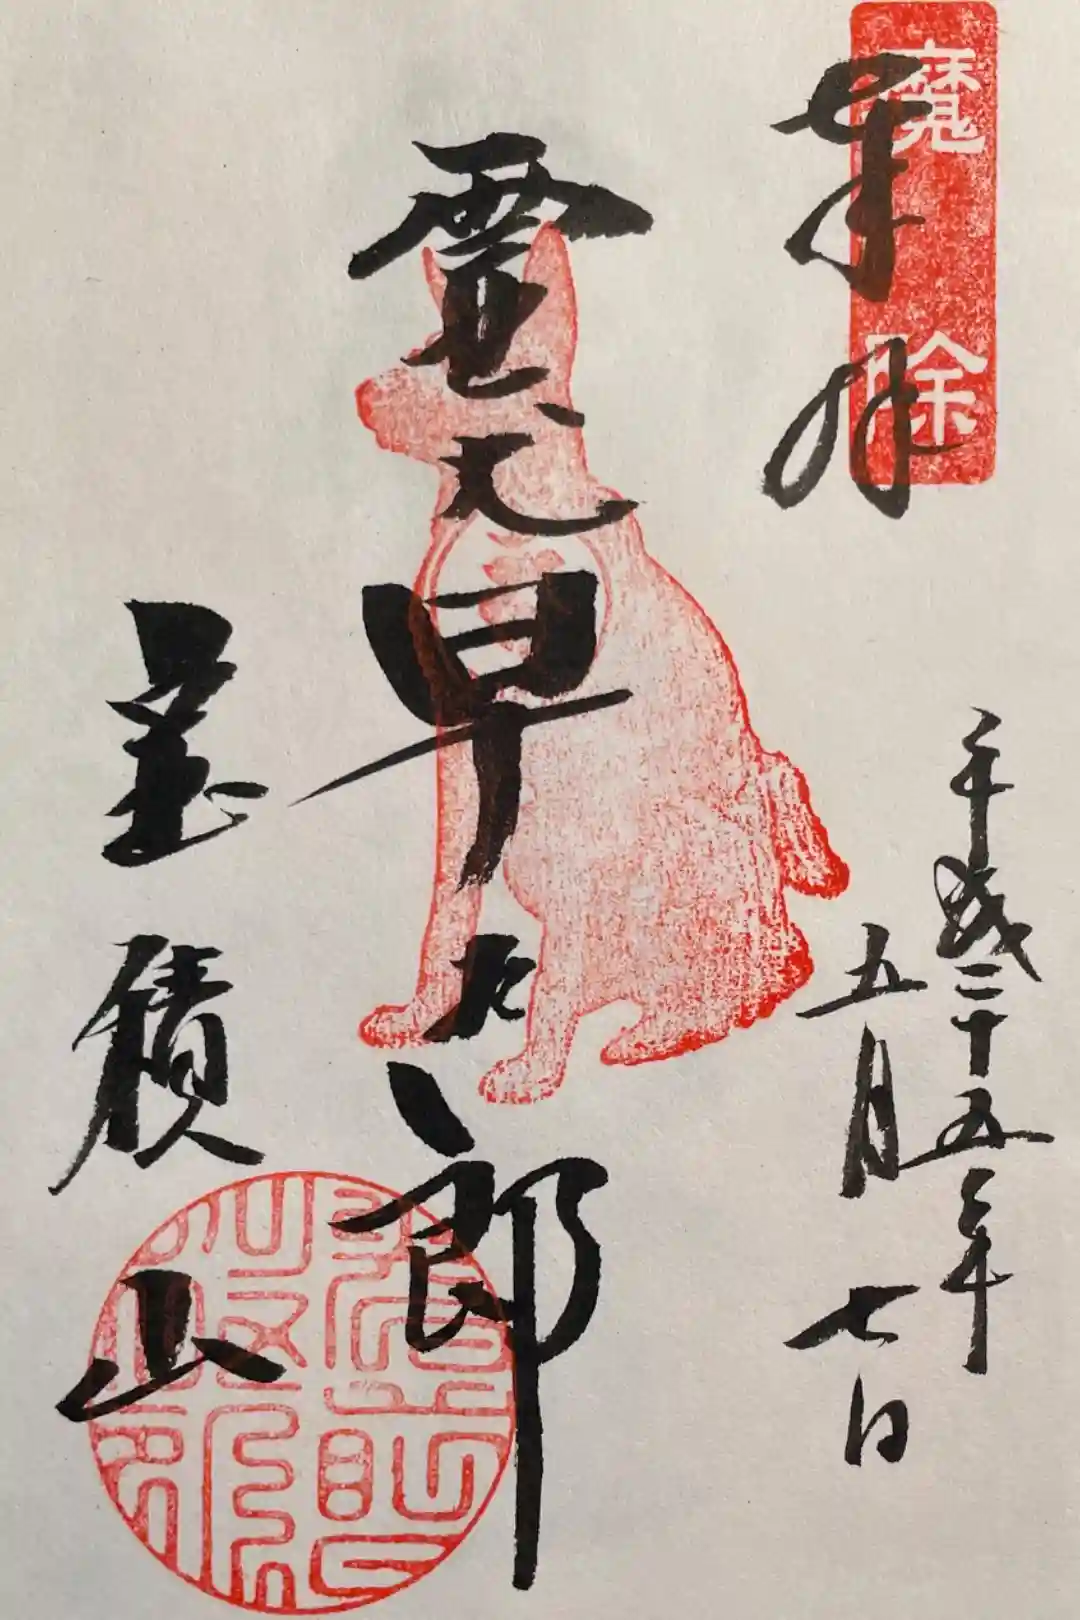 奉拝
魔除
平成二十五年
五月七日
霊犬早太郎
宝積山